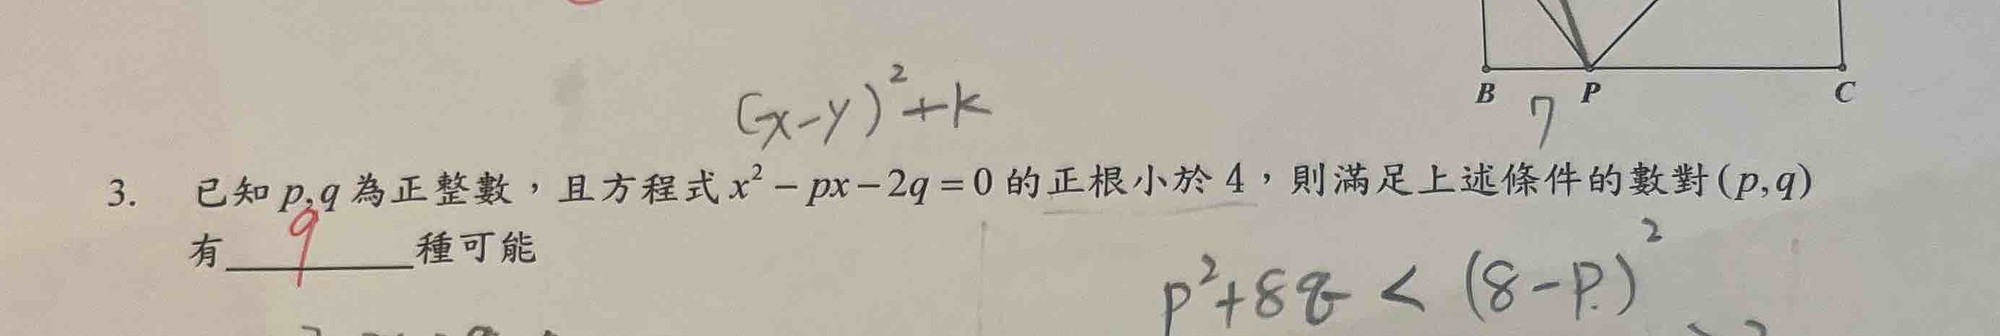 (x-y)²+k
B 7 P C
3. 已知 p,q 為正整數，且方程式 x² - px - 2q = 0 的正根小於 4，則滿足上述條件的數對(p,q)
有 9 種可能
p²+8q < (8-p)²